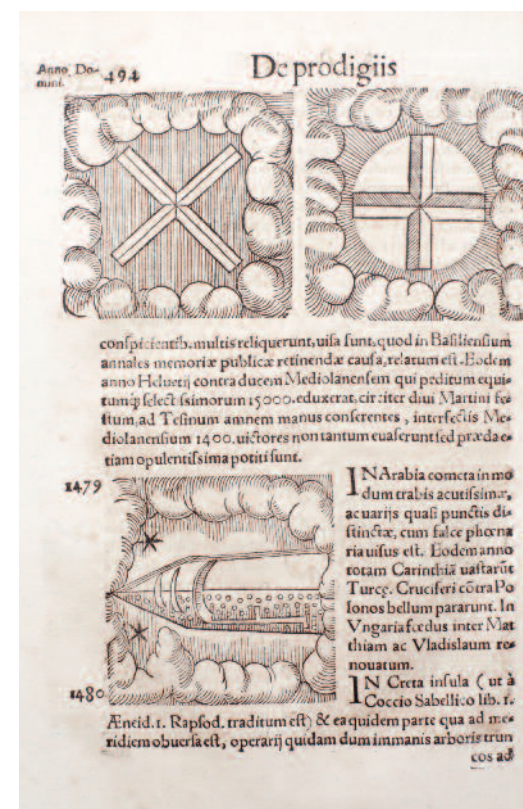 Anno Do-
mini. 494 De prodigiis
conspicientib. multis reliquerunt, uisa sunt, quod in Basiliensium
annales memoriæ publicæ retinendæ causa, relatum est. Eodem
anno Heluetij contra ducem Mediolanensem qui peditum equi-
tumq́; select ssimorum 15000. eduxerat, cir iter diui Martini fe-
stum, ad Tesinum amnem manus conserentes, interfectis Me-
diolanensium 1400. uictores non tantum euaserunt sed præda e-
tiam opulentissima potiti sunt.
1479
IN Arabia cometa in mo
dum trabis acutissimæ,
ac uarijs quasi punctis di-
stinctæ, cum falce phœna
ria uisus est. Eodem anno
totam Carinthiã uastarũt
Turcę. Cruciferi cõtra Po
lonos bellum pararunt. In
Vngaria fœdus inter Mat
thiam ac Vladislaum re-
nouatum.
1480
IN Creta insula (ut à
Coccio Sabellico lib. 1.
Æneid. 1. Rapsod. traditum est) & ea quidem parte qua ad me-
ridiem obuersa est, operarij quidam dum immanis arboris trun
cos ad